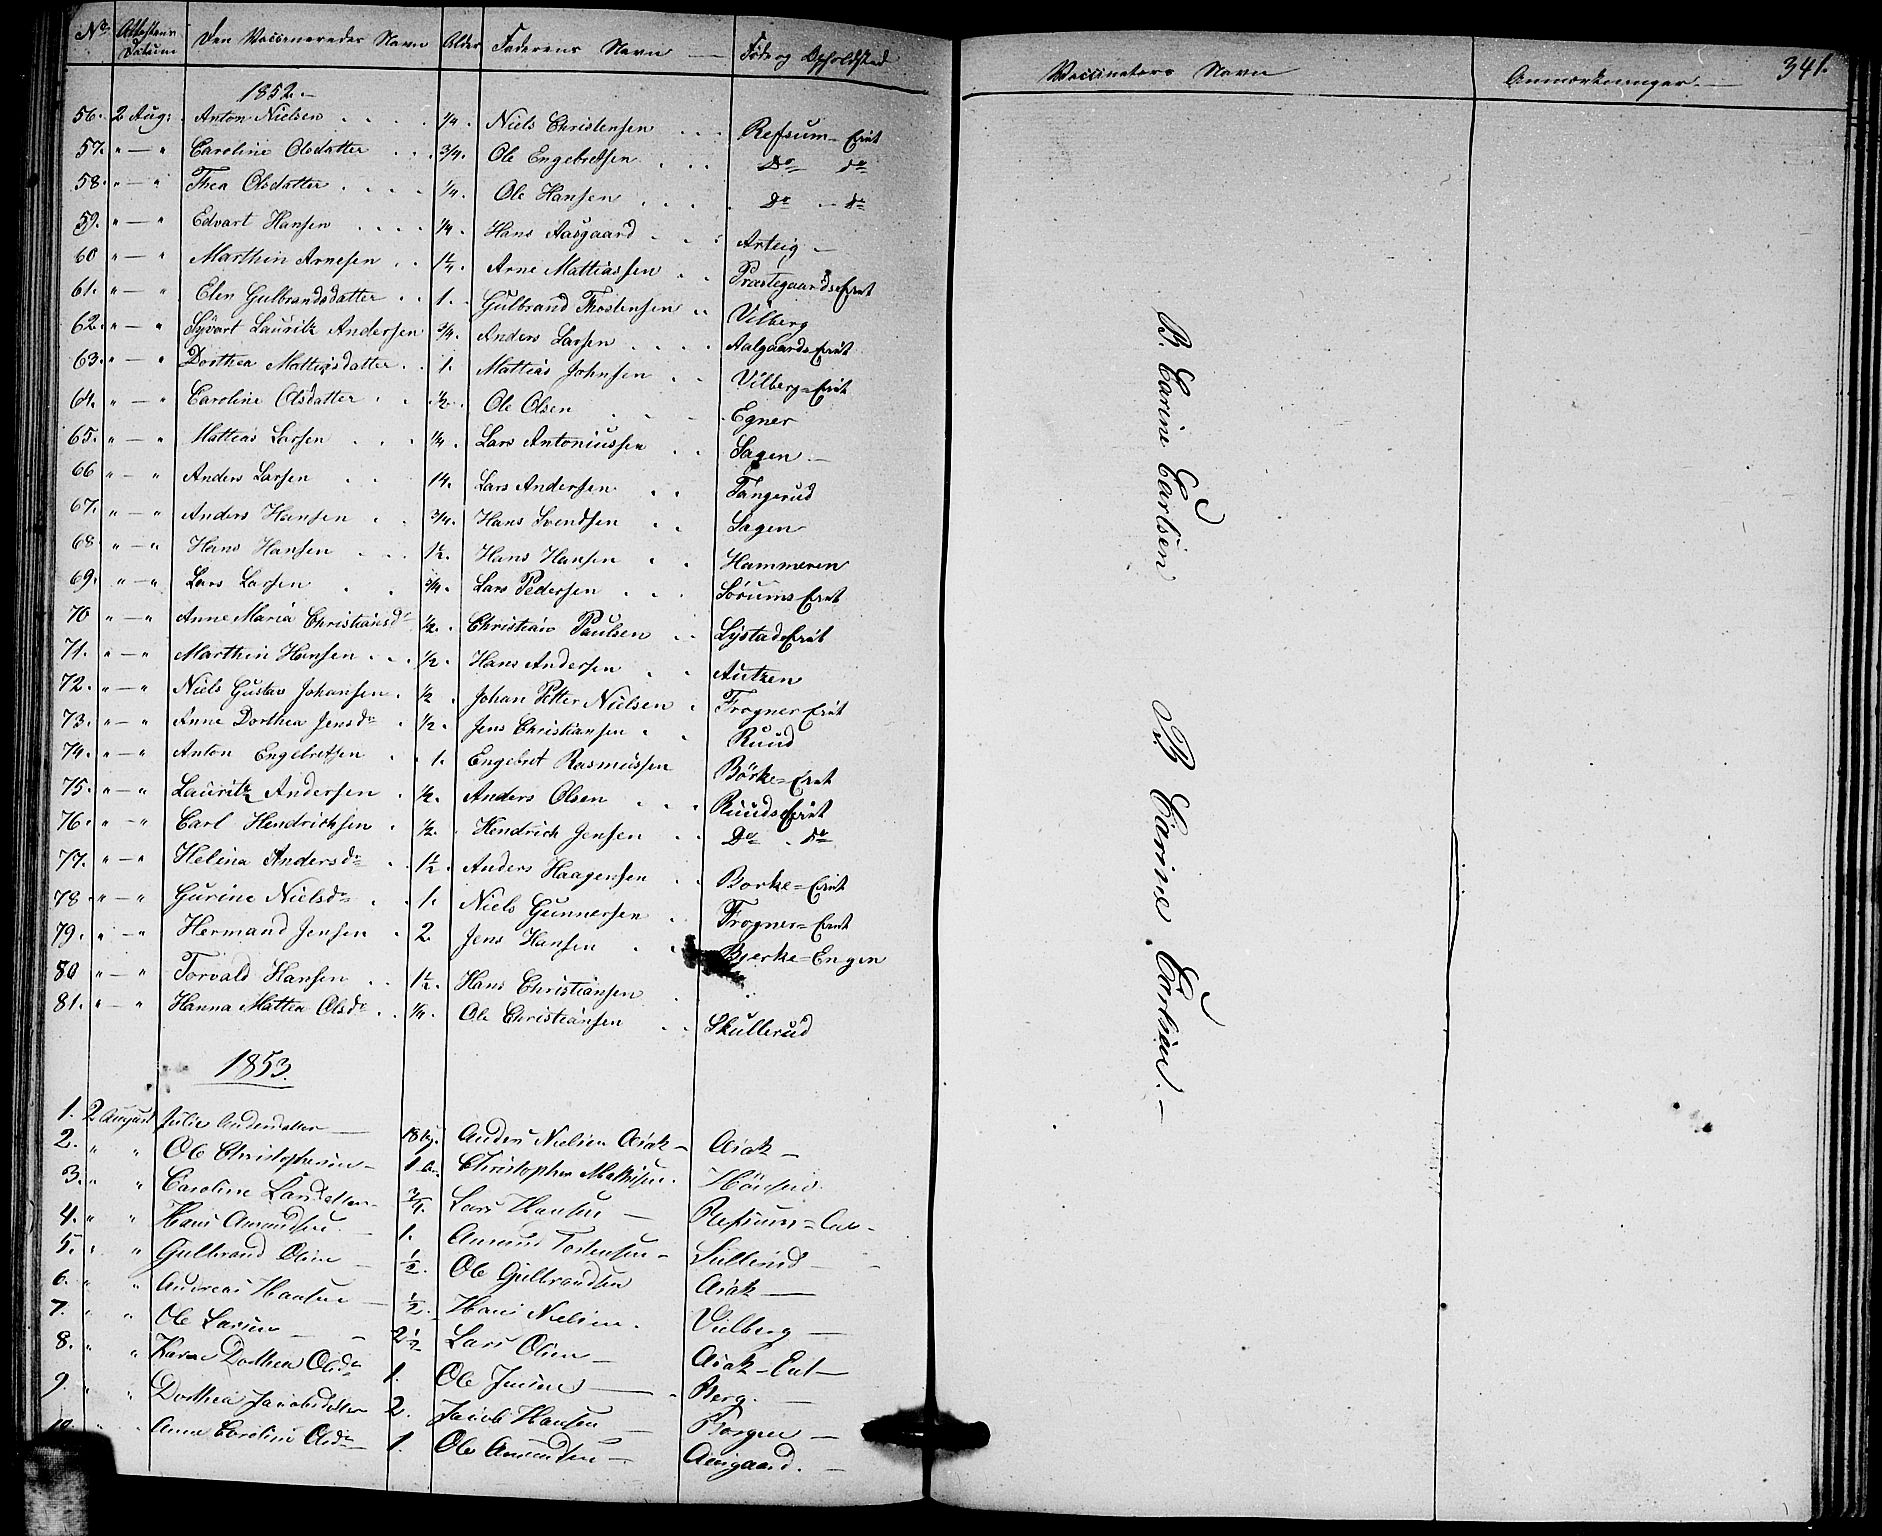 No. Attestens Datum Den Vaccineredes Navn Alder Faderens Navn Føde og Opholdsted
Vaccinators Navn Anmærkninger. 341.
1852.
56. 2 Aug: Anton Nielsen 1/4. Niels Christensen Refsum-Eiet
57. " — " Caroline Olsdatter 3/4. Ole Engebretsen Do do
58. " — " Thea Olsdatter 1/4. Ole Hansen Do - do
59. " — " Edvart Hansen 1/4. Hans Aasgaard Arteig
60 " — " Marthin Arnesen 1 1/4. Arne Mattiassen Præstegaards Eiet
61. " — " Elen Gulbrandsdatter 1. Gulbrand Thostensen Vilberg
62. " — " Syvart Lauritz Andersen 3/4. Anders Larsen Aalgaards Eiet
63. " — " Dorthea Mattiasdatter 1. Mattias Johnsen Vilberg=Eiet
64. " — " Caroline Olsdatter 1/2. Ole Olsen Egner
65. " — " Mattias Larsen 1/4. Lars Antoniussen Sagen
66 " — " Anders Larsen 14. Lars Andersen Tangerud
67. " — " Anders Hansen 3/4. Hans Svendsen Sagen
68. " — " Hans Hansen 1 1/2. Hans Hansen Hammeren
69. " — " Lars Larsen 3/4. Lars Pedersen Sørums Eiet
70 " — " Anne Maria Christiansdr 1/2. Christian Paulsen Lystads Eiet
71. " — " Marthin Hansen 1/2. Hans Andersen Autzen
72. " — " Niels Gustav Johansen 1/2. Johan Petter Nielsen Frogner Eiet
73. " — " Anne Dorthea Jensdr 1/2. Jens Christiansen Ruud
74. " — " Anton Engebretsen 1. Engebret Rasmussen Børke=Eiet
75. " — " Lauritz Andersen 1/2. Anders Olsen Ruuds Eiet
76. " — " Carl Hendrichsen 1/2. Hendrich Jensen Do. do
77. " — " Helena Andersdr 1 1/2. Anders Haagensen Borke=Eiet
78 " — " Gurine Nielsdr 1. Niels Gunnersen Frogner=Eiet
79. " — " Hermand Jensen 2. Jens Hansen Bjerke=Engen
80 " — " Torvald Hansen 1 1/2. Hans Christiansen
81. " — " Hanna Mattea Olsdr 1/4. Ole Christiansen Skullerud
1853.
1. 2 August Julie Andersdatter Anders Nielsen Asak — Asak —
2. " " Ole Christophersen 1 Christopher Mathisen.
3. " " Caroline Larsdatter 3/4. Lars Hansen Refsum=Eie
4. " " Hans Amundsen 1. Amund Tostensen
5. " " Gulbrand Olsen 1/2. Ole Gulbrandsen Asak
6. " " Andreas Hansen 1/2. Hans Nielsen. Vilberg
7. " " Ole Larsen 2 1/2 Lars Olsen Asak-Eiet
8. " " Karen Dorthea Olsdr 1. Ole Jensen Berg.
9. " " Dorthea Jacobsdatter 2. Jacob Hansen
10. " " Anne Caroline Olsdr 1. Ole Amundsen Aasgaard.
B. Carine Carlsen
B Carine Carlsen. —